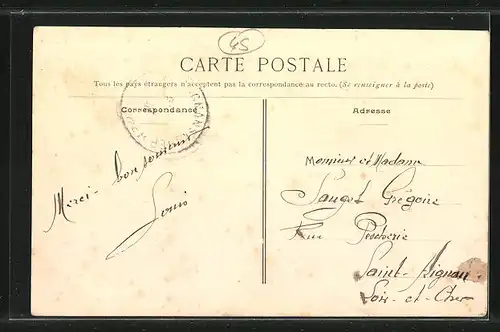 45
CARTE POSTALE
Tous les pays étrangers n'acceptent pas la correspondance au recto. (Se renseigner à la poste)
Correspondance
Adresse
Merci - bon souvenir
Louis
Monsieur et Madame
Sauget Grégoire
Rue
Saint-Aignan
Loir-et-Cher